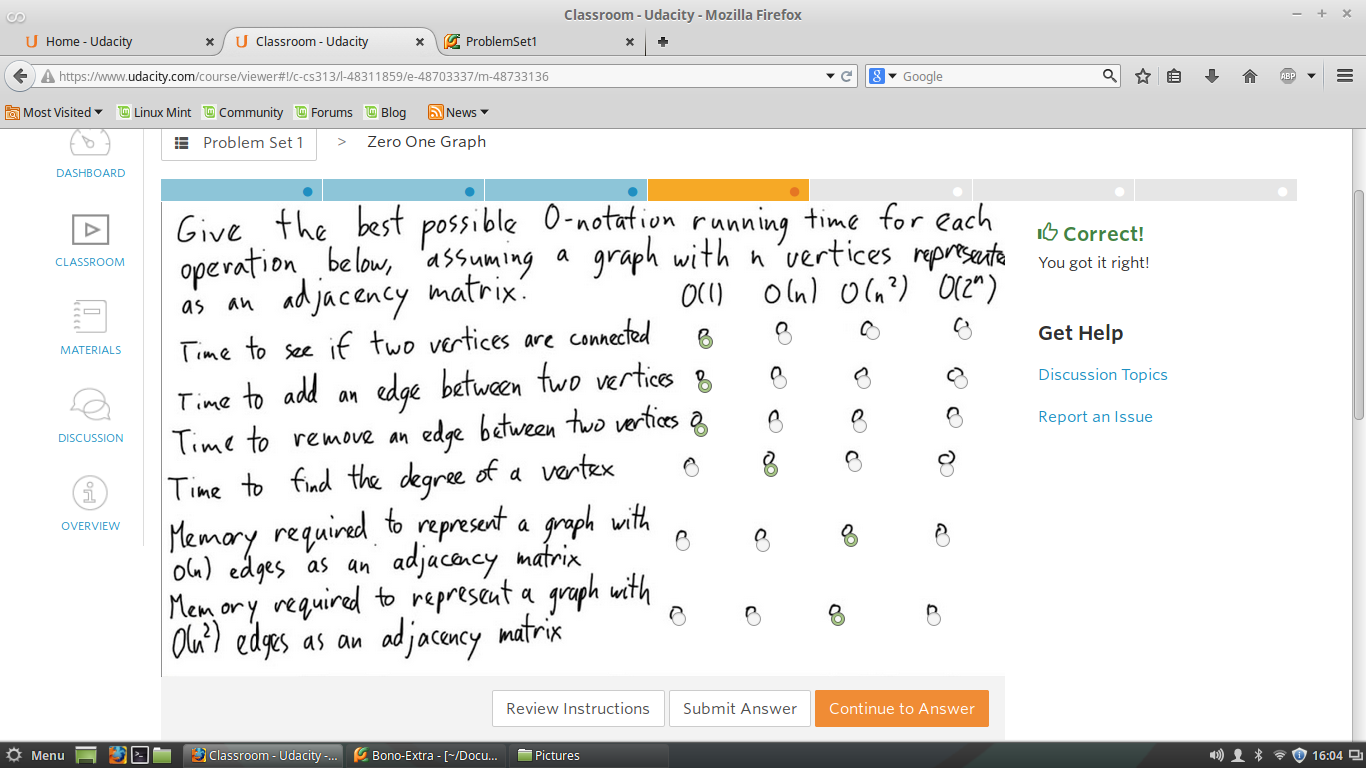 Classroom - Udacity - Mozilla Firefox
Home - Udacity
Classroom - Udacity
ProblemSet1
https://www.udacity.com/course/viewer#!/c-cs313/l-48311859/e-48703337/m-48733136
Google
ABP
Most Visited
Linux Mint
Community
Forums
Blog
News
Problem Set 1 > Zero One Graph
DASHBOARD
CLASSROOM
MATERIALS
DISCUSSION
OVERVIEW
Give the best possible O-notation running time for each
operation below, assuming a graph with n vertices represented
as an adjacency matrix.
O(1) O(n) O(n²) O(2ⁿ)
Time to see if two vertices are connected
Time to add an edge between two vertices
Time to remove an edge between two vertices
Time to find the degree of a vertex
Memory required to represent a graph with
O(n) edges as an adjacency matrix
Memory required to represent a graph with
O(n²) edges as an adjacency matrix
Correct!
You got it right!
Get Help
Discussion Topics
Report an Issue
Review Instructions
Submit Answer
Continue to Answer
Menu
Classroom - Udacity -...
Bono-Extra - [~/Docu...
Pictures
16:04